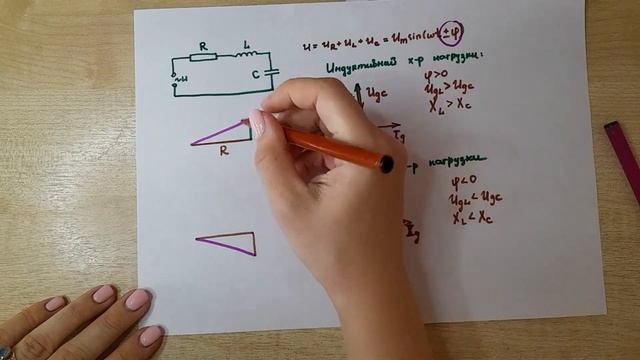 R L
C
~u
u = u_R + u_L + u_C = U_m sin(ωt ± φ)
Индуктивный х-р нагрузки:
φ>0
U_дL > U_дC
X_L > X_C
U_дC
I_д
R
-р нагрузки
φ<0
U_дL < U_дC
X_L < X_C
I_д